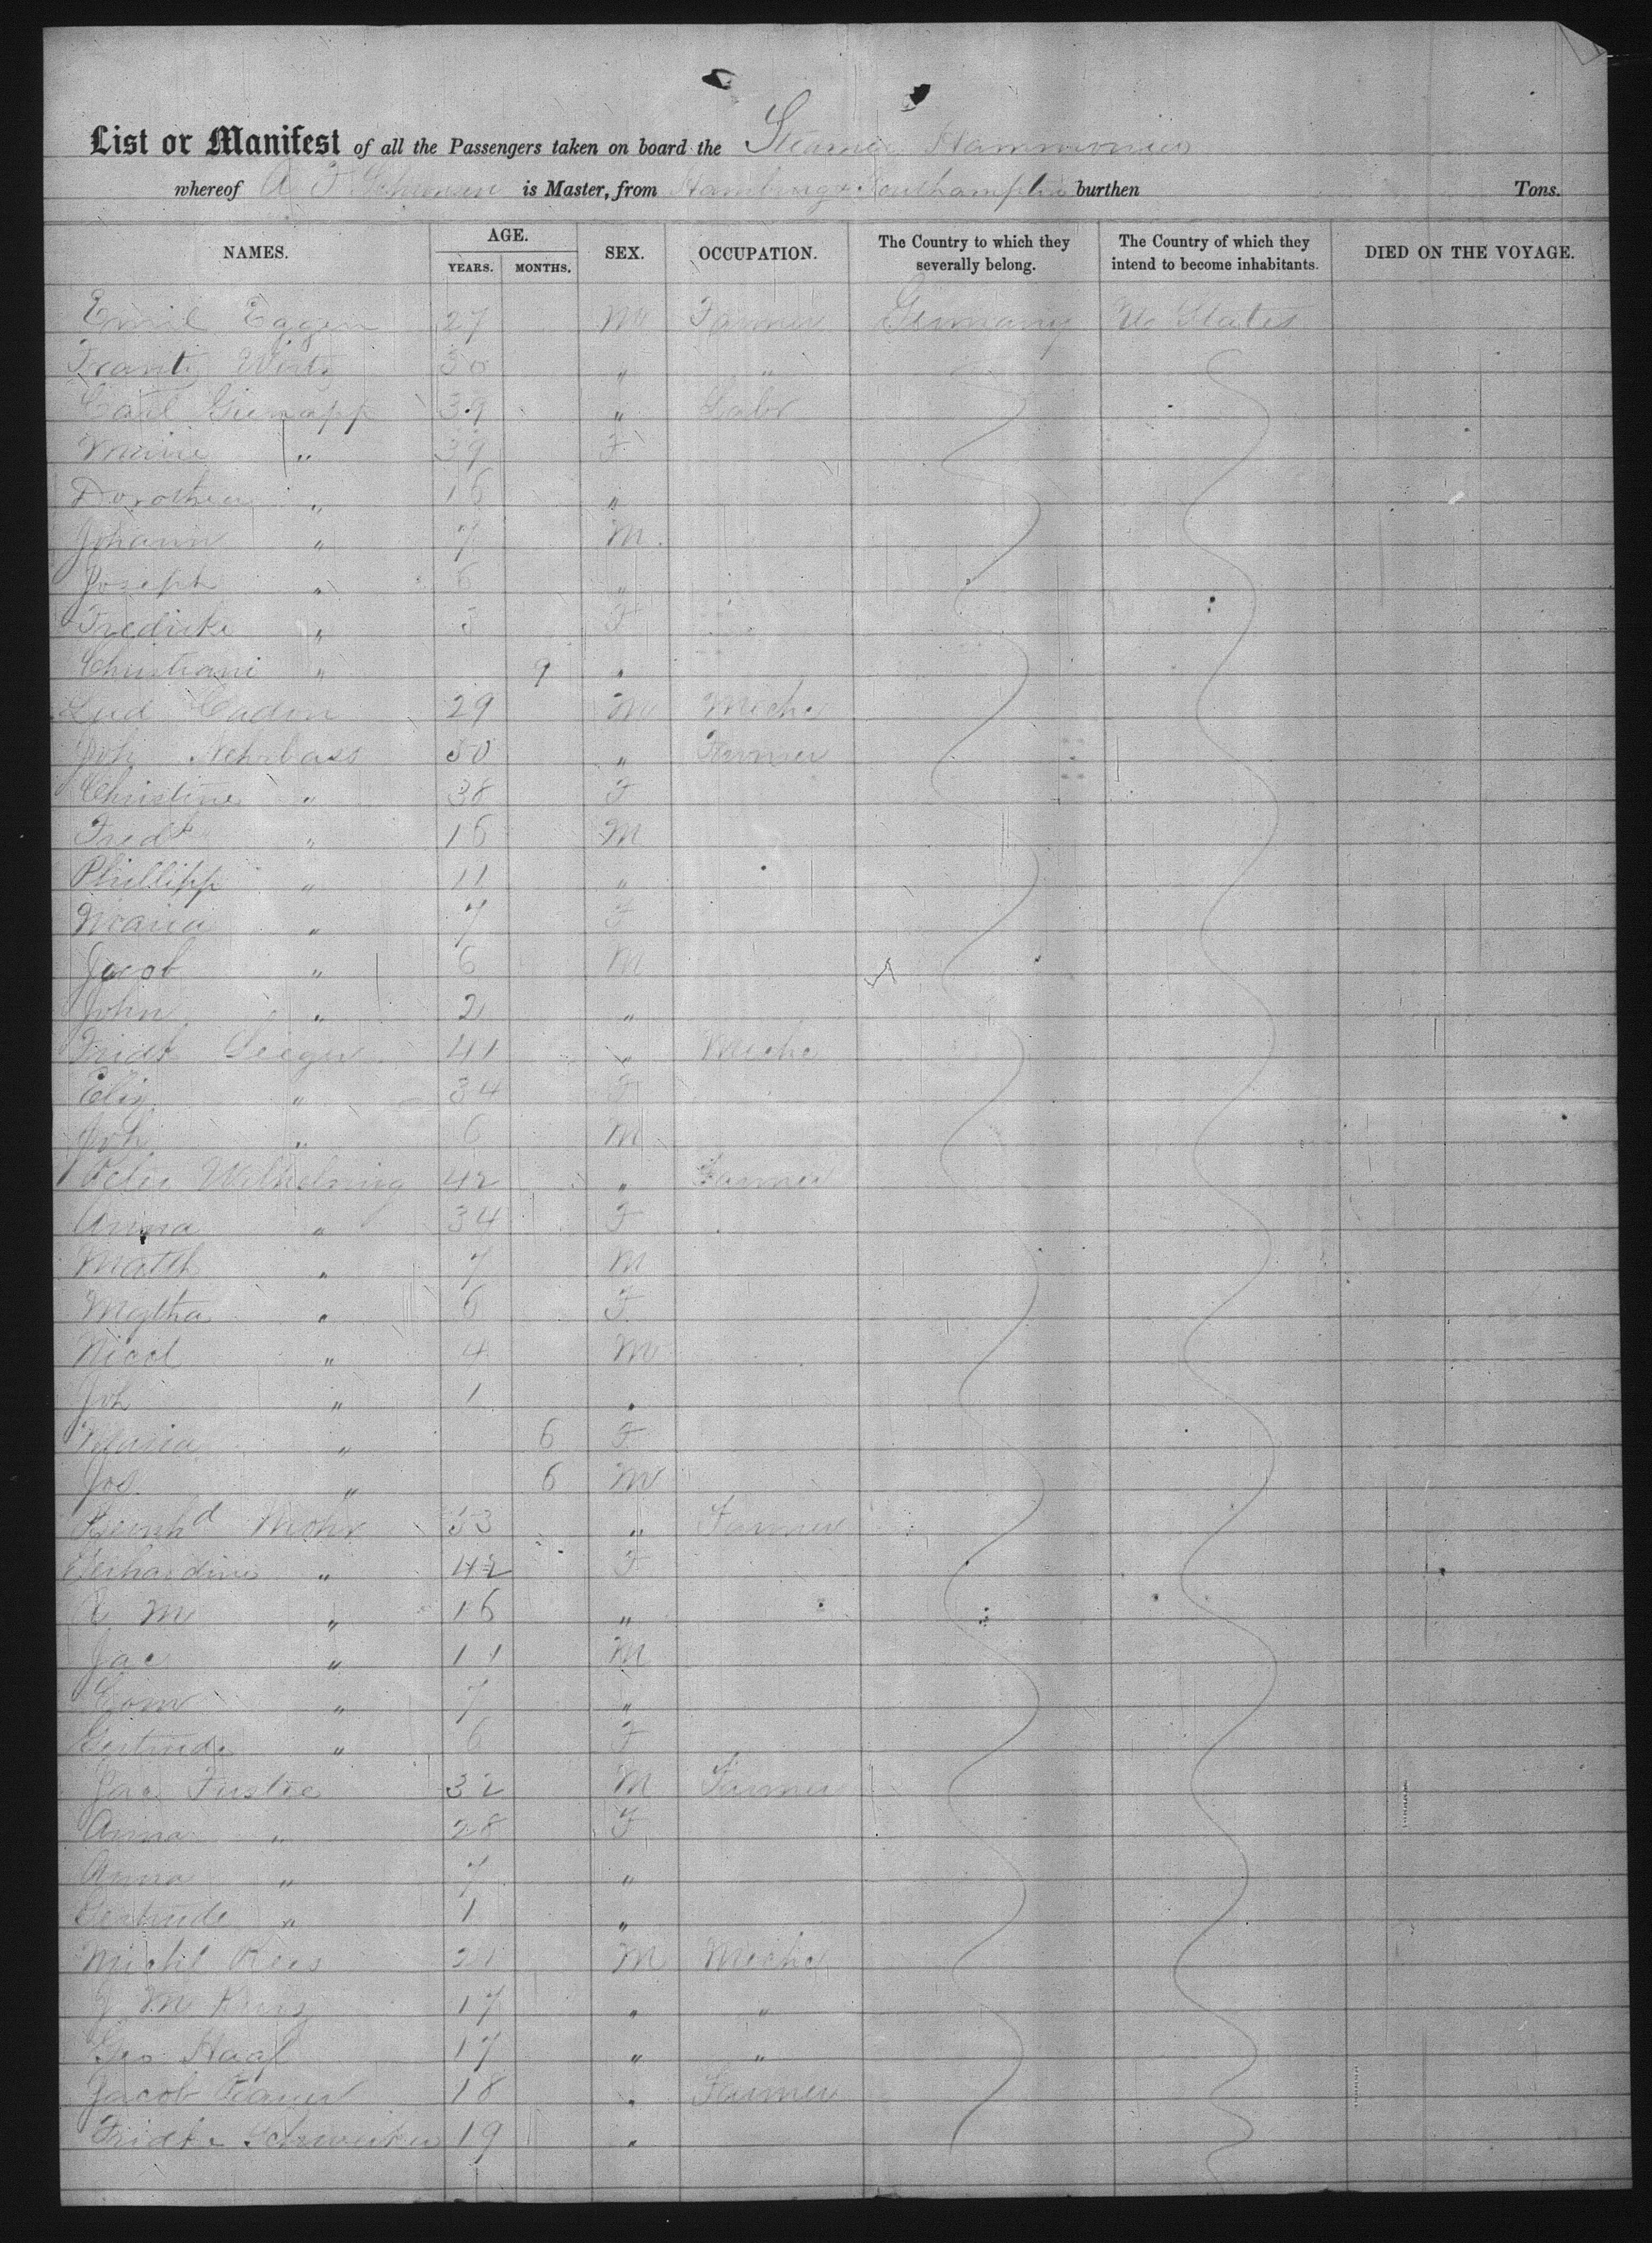 List or Manifest of all the Passengers taken on board the Steamer Hammonia
whereof A F is Master, from Hamburg & Southampton burthen Tons.
NAMES. AGE. YEARS. MONTHS. SEX. OCCUPATION. The Country to which they severally belong. The Country of which they intend to become inhabitants. DIED ON THE VOYAGE.
Emil Eggen 27 M Farmer Germany U States
Frantz Wirtz 30 " "
Carl 39 " Labr
Marie " 39 F
Dorothea " 16 "
Johann " 7 M
Joseph " 6 "
Fredicke " 3 F
Christiani " 9 "
Lud Cadon 29 M Mechc
Joh Nehrbass 50 " Farmer
Christine " 38 F
Fredk " 16 M
Phillipp " 11 "
Maria " 7 F
Jacob " 6 M
John " 2 "
Fridk Seeger 41 " Mechc
Eliz " 34 F
Joh " 6 M
Peter Wilhelmig 42 " Farmer
Anna " 34 F
Math " 7 M
Mgtha " 6 F
Nicol " 4 M
Joh " 1 "
Maria " 6 F
Jos " 6 M
Reinhd Mohr 33 " Farmer
Gerhardine " 42 F
A M " 16 "
Jac " 11 M
" 7 "
Gertrude " 6 F
Jac Fustre 32 M Farmer
Anna " 28 F
Anna " 7 "
Gertrude " 1 "
Michl Rees 21 M Mechc
J M 17 " "
Geo Haaf 17 " "
Jacob 18 " Farmer
Fridke 19 "